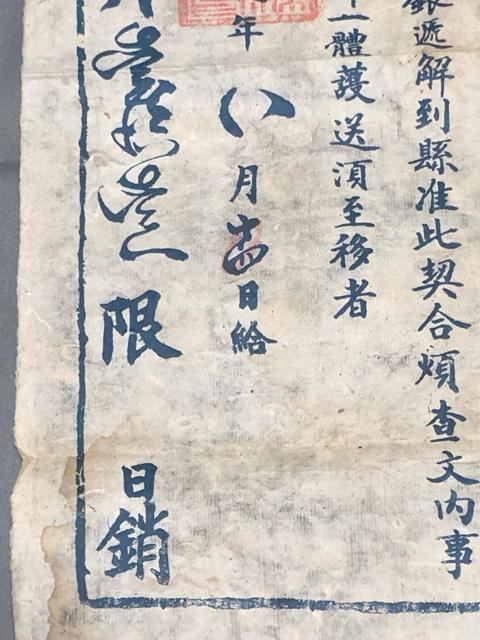 銀遞解到縣准此契合煩查文內事
一體護送須至移者
年八月十四日給
限日銷